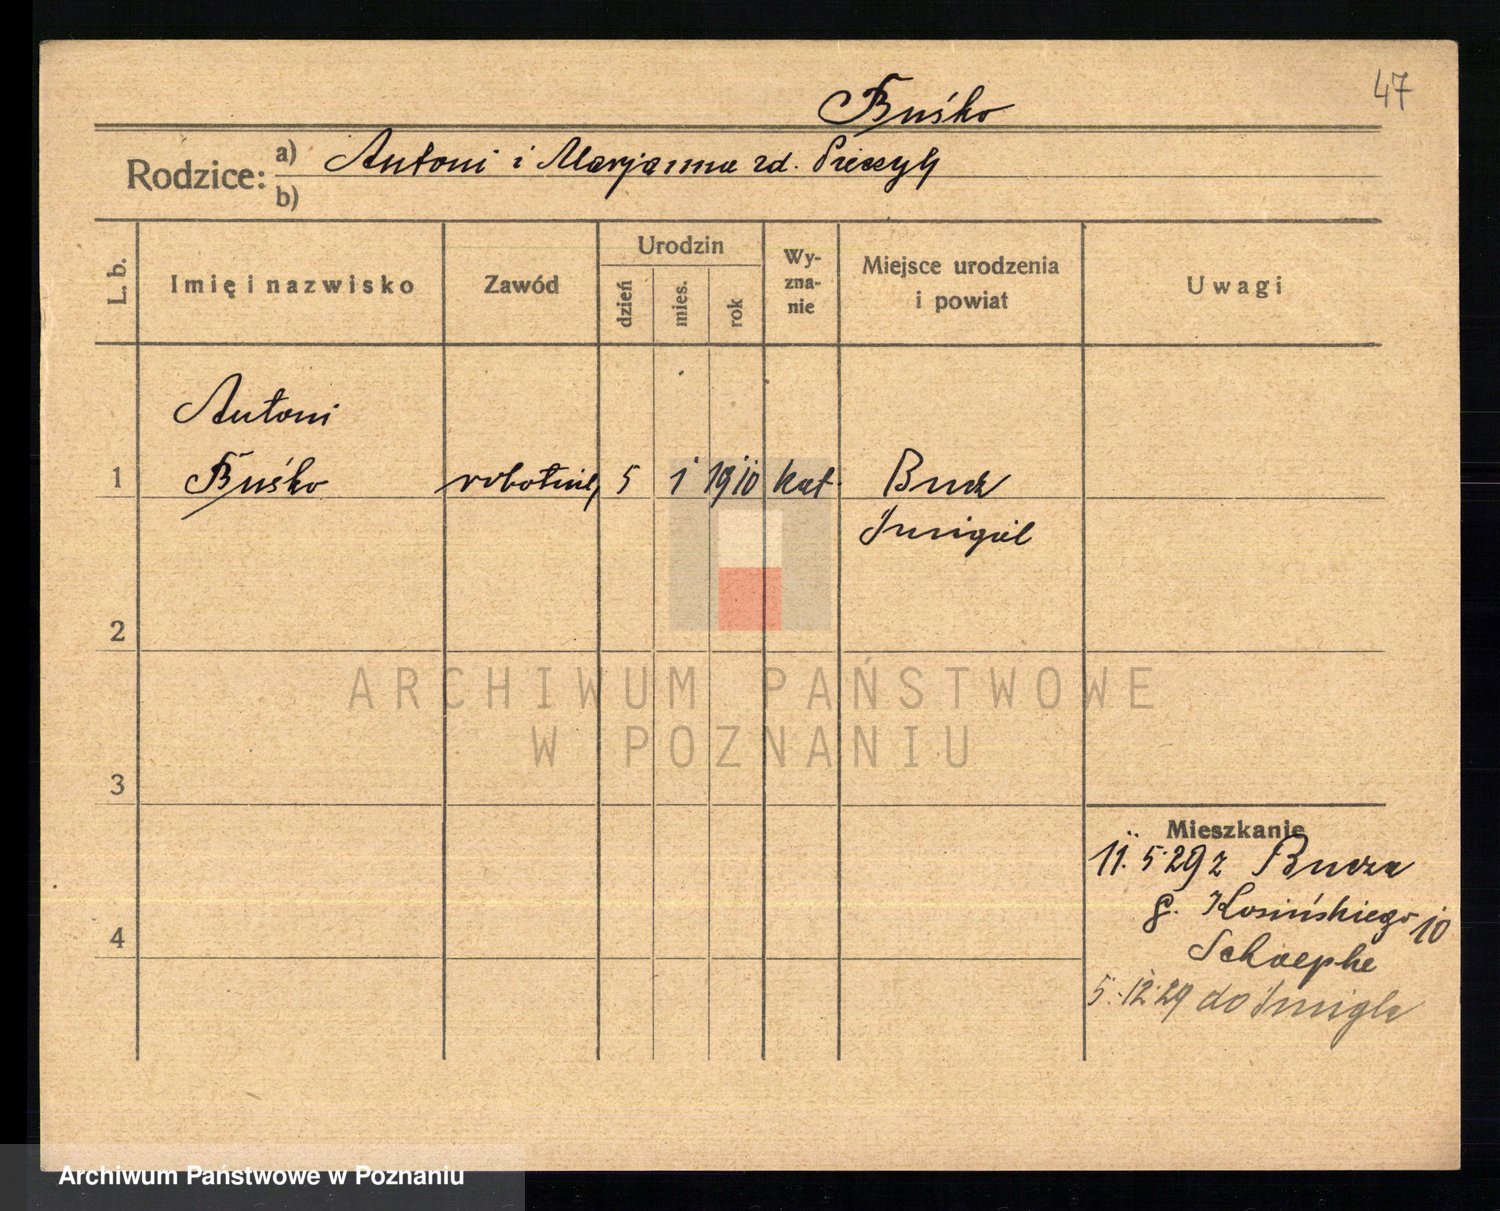 47
Buśko
Rodzice: a) Antoni i Marjanna zd.
b)
L. b.
Imię i nazwisko
Zawód
Urodzin
dzień
mies.
rok
Wy-
zna-
nie
Miejsce urodzenia
i powiat
Uwagi
Antoni
1 Buśko robotnik 5 1 1910 kat. Bucz
Śmigiel
2
ARCHIWUM PAŃSTWOWE
W POZNANIU
3
Mieszkanie
11.5.29 z Bucza
g. Kosińskiego 10
4
5.12.29 do Śmigla
Archiwum Państwowe w Poznaniu